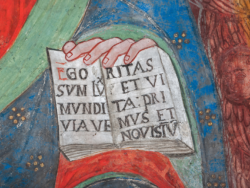 EGO
SVM LV̄
MVNDI
VIA VE
RITAS
ET VI
TA: PRI
MVS ET